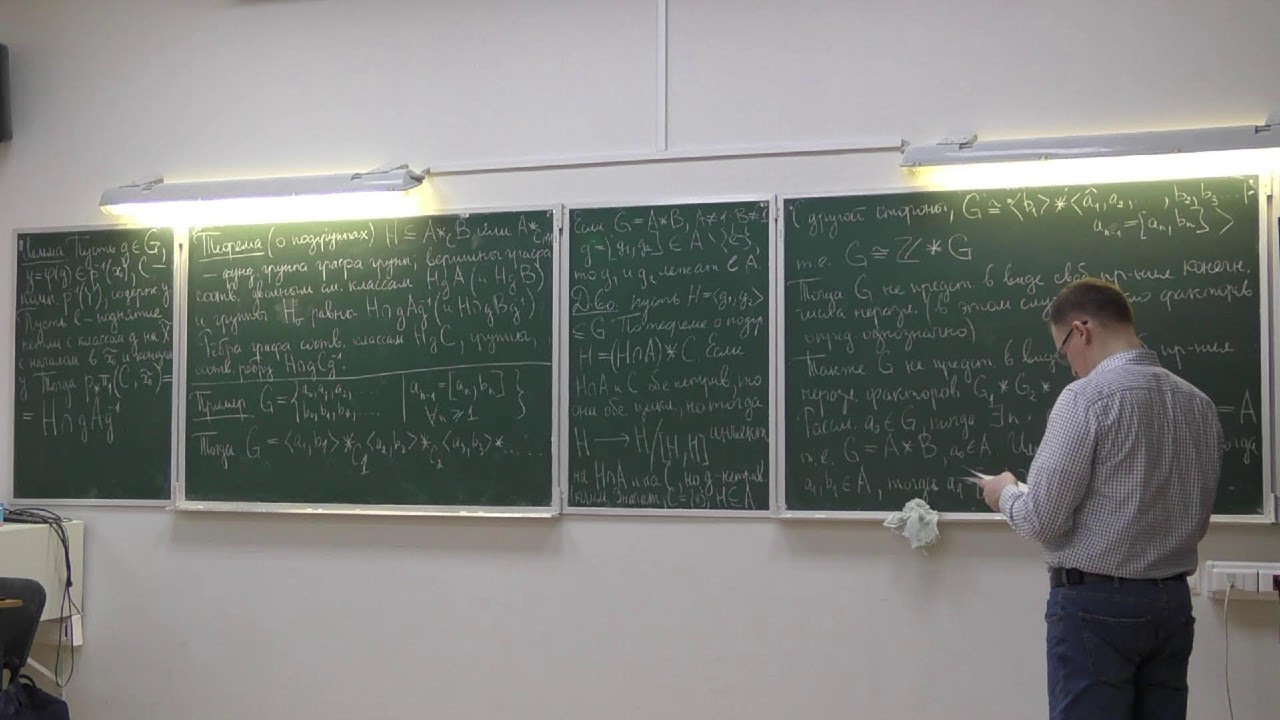 Лемма Пусть g∈G,
y=φ(g)∈p⁻¹(x₀), C –
комп. p⁻¹(Y), содерж. y
Пусть l – поднятие
петли с классом g на X̃
с началом в x̃₀ и концом
y. Тогда p_*π₁(C, x̃₀)=
= H∩gAg⁻¹
Теорема (о подгруппах) H ⊆ A*_C B или A*_C
– фунд. группа графа групп; вершины графа
соотв. двойным см. классам HgA (и HgB)
и группы H_v равны H∩gAg⁻¹ (и H∩gBg⁻¹)
Рёбра графа соотв. классам HgC, группы,
соотв. ребру H∩gCg⁻¹.
Пример G={a₀,a₁,a₂,... b₀,b₁,b₂,... | a_{n-1}=[a_n,b_n] ∀n≥1}
Тогда G = <a₁,b₁> *_{C₁} <a₂,b₂> *_{C₂} <a₃,b₃> * .....
Если G=A*B, A≠1, B≠1
g=[g₁,g₂] ∈ A \ {e},
то g₁ и g₂ лежат в A.
Д-во: пусть H=<g₁,g₂>
⊆ G По теореме о подгр
H=(H∩A)*C. Если
H∩A и C обе нетрив., то
они обе цикл., но тогда
H → H/[H,H] инъект.
на H∩A и на C, но g – нетрив.
комм. Значит, C={e}, H⊆A
С другой стороны, G ≅ <b₁> * <â₁,a₂,... , b₂,b₃... |
a_{n-1}=[a_n,b_n]>
т.е. G ≅ ℤ * G
Тогда G не предст. в виде своб. пр-ния конечн.
числа неразл. (в этом факторов
опред. однозначно)
Также G не предст. в виде пр-ния
неразл. факторов G₁*G₂*
Рассм. a₀∈G, тогда ∃n: = A
т.е. G=A*B, a₀∈A.
a₁,b₁∈A, тогда a₁